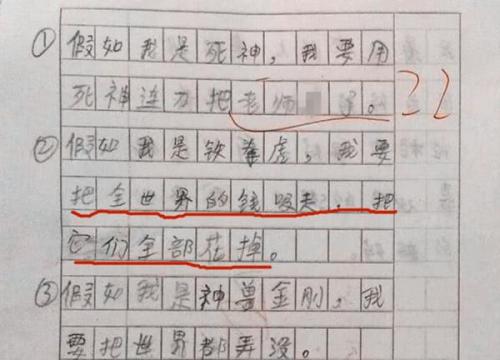 ①假如我是死神，我要用
死神连刀把老师了。??
②假如我是铁拳虎，我要
把全世界的钱吸夫，把
它们全部花掉。
③假如我是神兽金刚，我
要把世界都弄没。